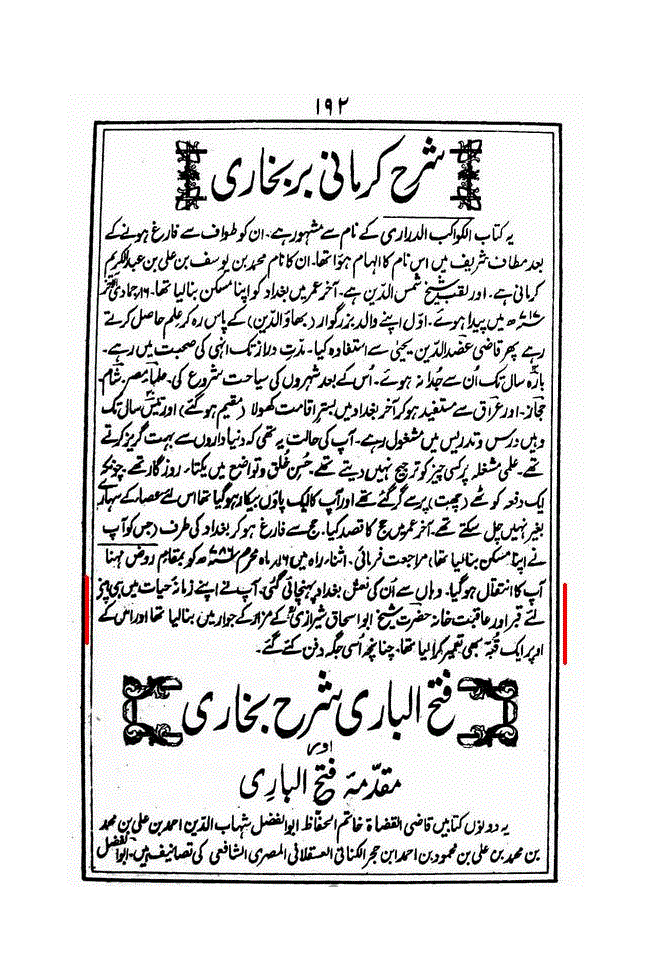 ۱۹۲
شرح کرمانی بر بخاری
یہ کتاب الکواکب الدراری کے نام سے مشہور ہے۔ ان کو طواف سے فارغ ہونے کے
بعد مطاف شریف میں اس نام کا الہام ہوا تھا۔ ان کا نام محمد بن یوسف بن علی بن عبدالکریم
کرمانی ہے۔ اور لقب شیخ شمس الدین ہے۔ آخر عمر میں بغداد کو اپنا مسکن بنالیا تھا۔ ۱۶؍ جمادی الآخر
۷۱۷ھ میں پیدا ہوئے۔ اوّل اپنے والد بزرگوار (بہاؤ الدین) کے پاس رہ کر علم حاصل کرتے
رہے پھر قاضی عضد الدین یحییٰ سے استفادہ کیا۔ مدّت دراز تک انہی کی صحبت میں رہے۔
بارہ سال تک اُن سے جُدا نہ ہوئے۔ اُس کے بعد شہروں کی سیاحت شروع کی۔ علماء مصر۔ شام۔
حجاز۔ اور عراق سے مستفید ہو کر آخر بغداد میں بستر اقامت کھولا (مقیم ہو گئے) اور تیس سال تک
وہیں درس و تدریس میں مشغول رہے۔ آپ کی حالت یہ تھی کہ دنیاداروں سے بہت گریز کرتے
تھے۔ علمی مشغلہ پر کسی چیز کو ترجیح نہیں دیتے تھے۔ حُسنِ خُلق و تواضع میں یکتاء روزگار تھے۔ چونکہ
ایک دفعہ کوٹھے (چھت) پر سے گر گئے تھے اور آپ کا ایک پاؤں بیکار ہو گیا تھا اس لئے عصاء کے سہارے
بغیر نہیں چل سکتے تھے۔ آخر عمر میں حج کا قصد کیا۔ حج سے فارغ ہو کر بغداد کی طرف (جس کو آپ
نے اپنا مسکن بنالیا تھا) مراجعت فرمائی۔ اثناء راہ میں ۱۶؍ ماہ محرم ۷۸۶ھ کو بمقام روض مہنا
آپ کا انتقال ہو گیا۔ وہاں سے اُن کی نعش بغداد پہنچائی گئی۔ آپ نے اپنے زمانہ حیات میں ہی اپنے
لئے قبر اور عاقبت خانہ حضرت شیخ ابو اسحاق شیرازیؒ کے مزار کے جوار میں بنالیا تھا اور اس کے
اوپر ایک قُبّہ بھی تعمیر کرالیا تھا۔ چنانچہ اُسی جگہ دفن کئے گئے۔
فتح الباری شرح بخاری
اور
مقدّمۂ فتح الباری
یہ دونوں کتابیں قاضی القضاۃ خاتم الحفّاظ ابوالفضل شہاب الدین احمد بن علی بن محمد
بن محمد بن علی بن محمود بن احمد ابن حجر الکنانی العسقلانی المصری الشافعی کی تصانیف ہیں۔ ابوالفضل